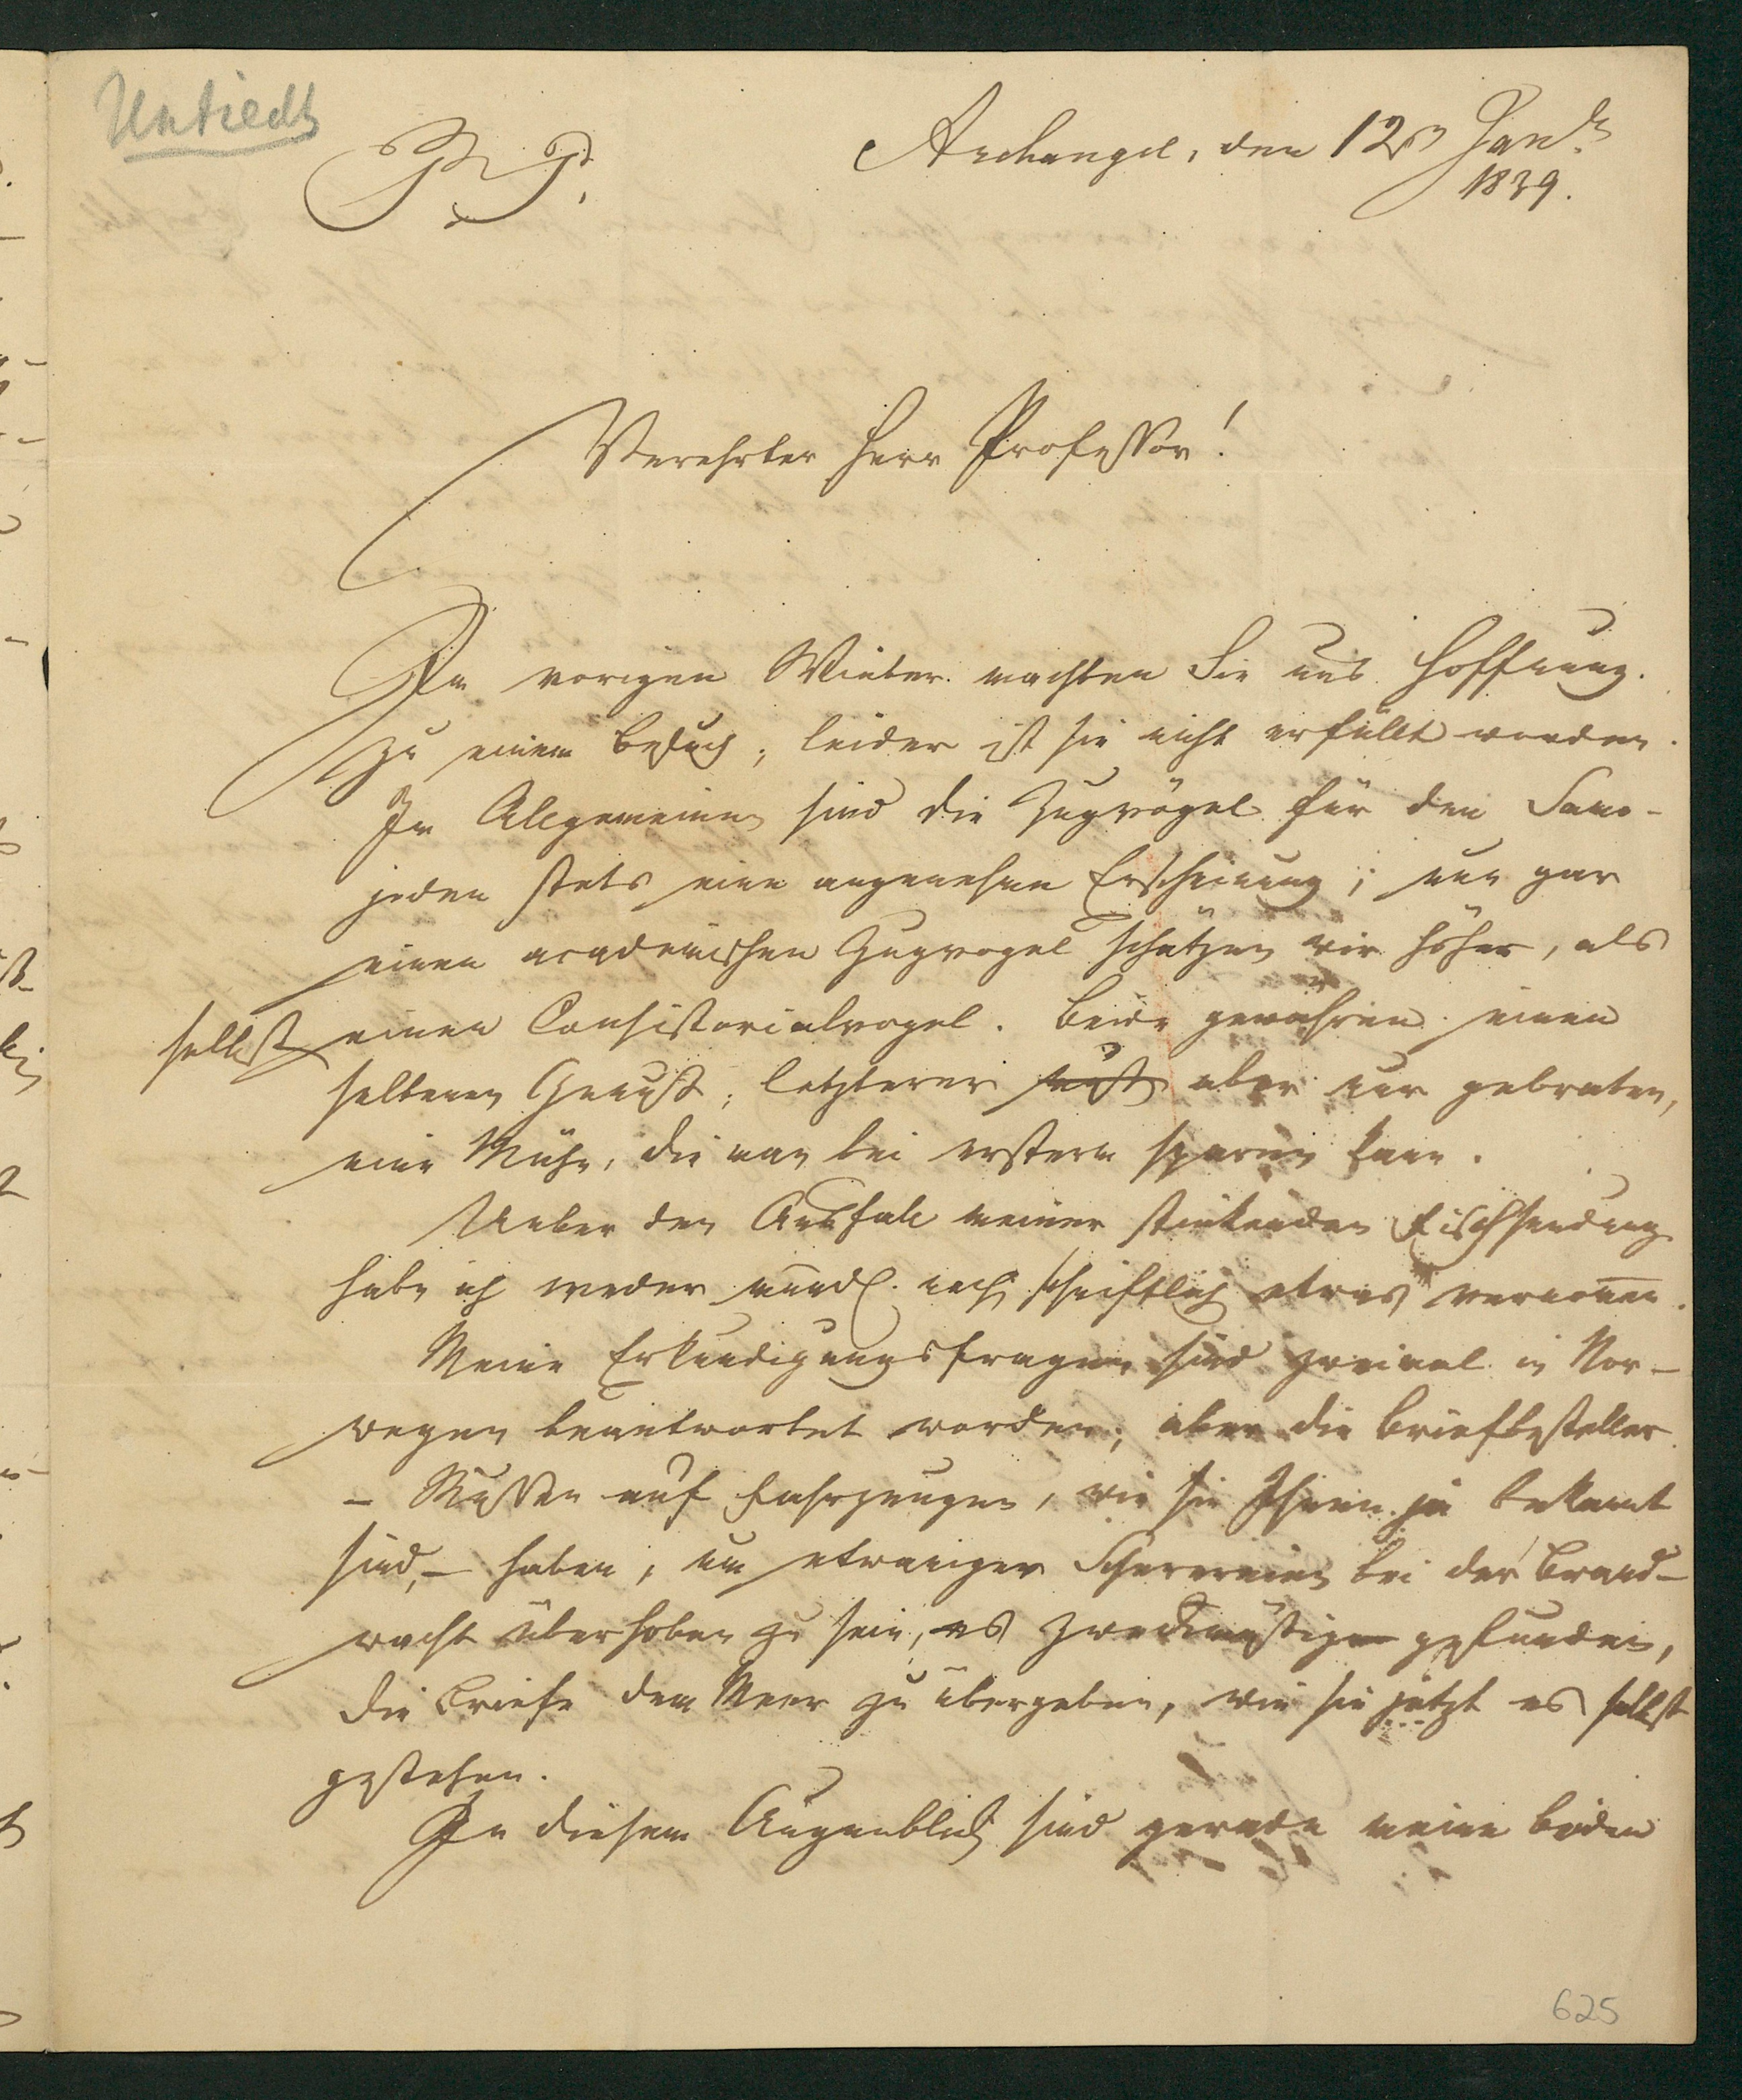 Untiedt
P. P.
Archangel, den 12ᵗ Jan.
1839.
Verehrter Herr Professor!
Im vorigen Winter machten Sie uns Hoffnung
zu einem Besuch; leider ist sie nicht erfüllt worden.
Im Allgemeinen sind die Zugvögel für den Samo-
jeden stets eine angenehme Erscheinung; nun gar
einen academischen Zugvogel schätzen wir höher, als
selbst einen Consistorialvogel. Beide gewähren einen
seltenen Genuß; letzterer muß aber nur gebraten,
eine Mühe, die man bei ersterm sparen kann.
Ueber den Ausfall meiner stinkenden Fischsendung
habe ich weder mündl. noch schriftlich etwas vernomen.
Meine Erkundigungsfragen sind zweimal in Nor-
wegen beantwortet worden; aber die Briefbesteller
– Russen auf Fahrzeugen, wie sie Ihnen ja bekannt
sind, – haben, um etwaiger Scherereien bei der Brand-
wacht überhoben zu sein, es zweckmäßiger gefunden,
die Briefe dem Meer zu übergeben, wie sie jetzt es selbst
gestehen.
In diesem Augenblick sind gerade meine beiden
625